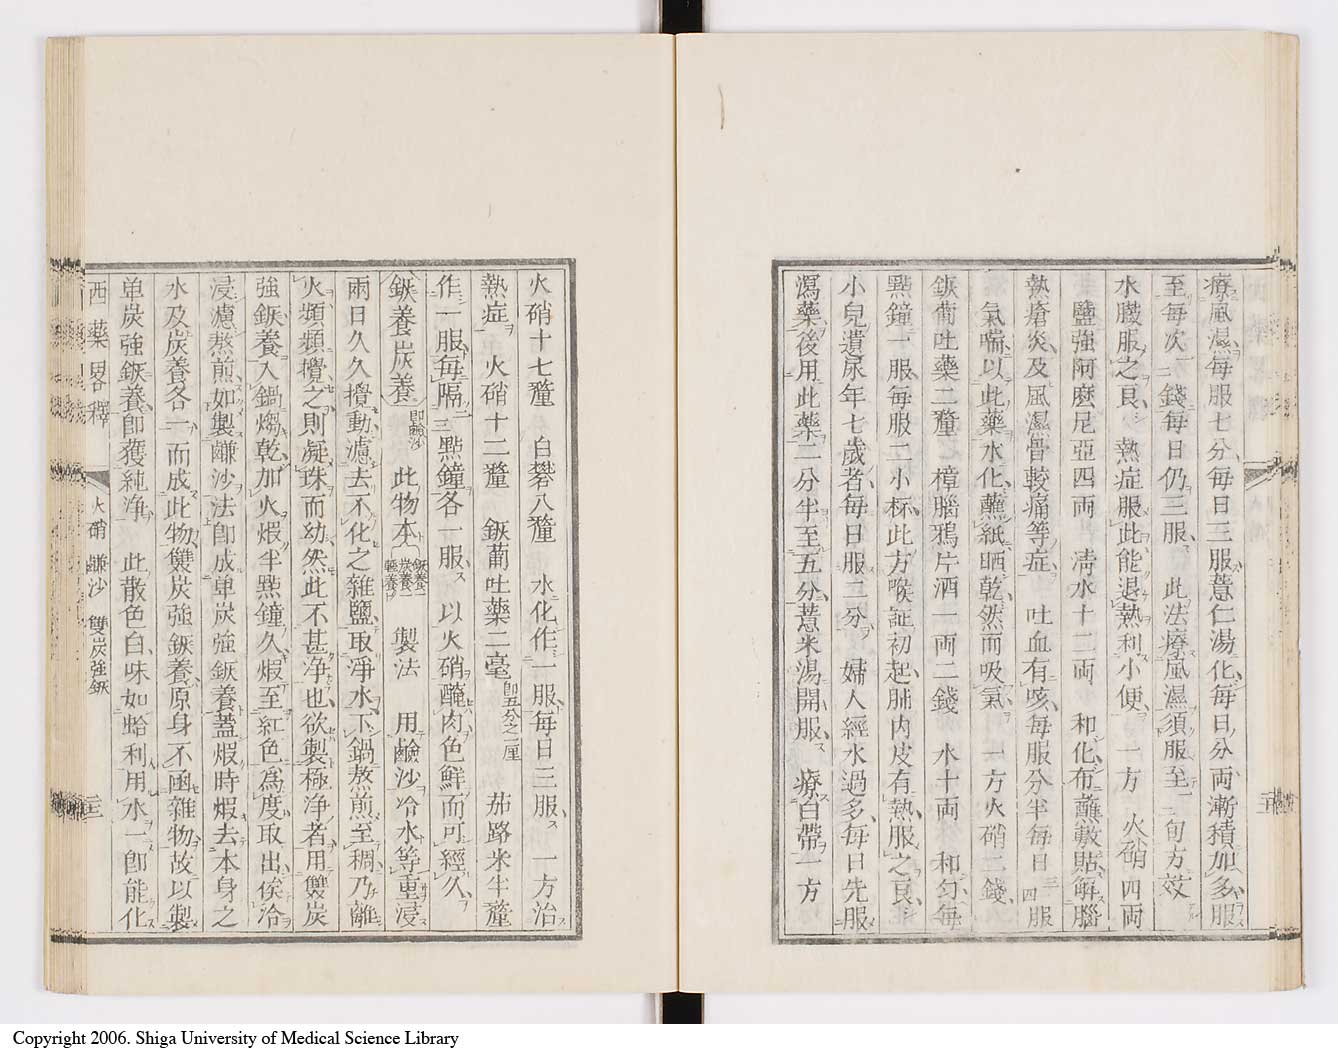 療風濕每服七分每日三服薏仁湯化每日分両漸積加多服
至每次一錢每日仍三服 此法療風濕須服至一旬方效
水臌服之良 熱症服此能退熱利小便 一方 火硝四両
鹽強阿麽尼亞四両 淸水十二両 和化布蘸敷貼解腦
熱瘡炎及風濕骨骹痛等症 吐血有咳每服分半每日三四服
氣喘以此藥水化蘸紙晒乾然而吸氣 一方火硝二錢
鋉葡吐藥二釐 樟腦鴉片酒一両二錢 水十両 和勻每
點鐘一服每服二小杯此方喉証初起肺肉皮有熱服之良
小兒遺尿年七歲者每日服二分 婦人經水過多每日先服
瀉藥後用此藥二分半至五分薏米湯開服 療白帶一方
火硝十七釐 白礬八釐 水化作一服每日三服 一方治
熱症 火硝十二釐 鋉葡吐藥二毫卽五分之一厘 茄路米半釐
作一服每隔二三點鐘各一服 以火硝醃肉色鮮而可經久
鋉養炭養卽鹼沙 此物本鋉養一炭養一輕養 製法 用鹼沙冷水等重浸
兩日久久攪動濾去不化之雜鹽取淨水下鍋熬煎至稠乃離
火頻頻攪之則凝珠而幼然此不甚净也欲製極净者用雙炭
強鋉養入鍋煼乾加火煆半點鐘久煆至紅色為度取出俟冷
浸濾熬煎如製鹻沙法卽成单炭強鋉養蓋煆時煆去本身之
水及炭養各一而成此物雙炭強鋉養原身不函雜物故以製
单炭強鋉養卽獲純净 此散色白味如蛤利用水一卽能化
西藥畧釋 火硝 鹻沙 雙炭強鋉